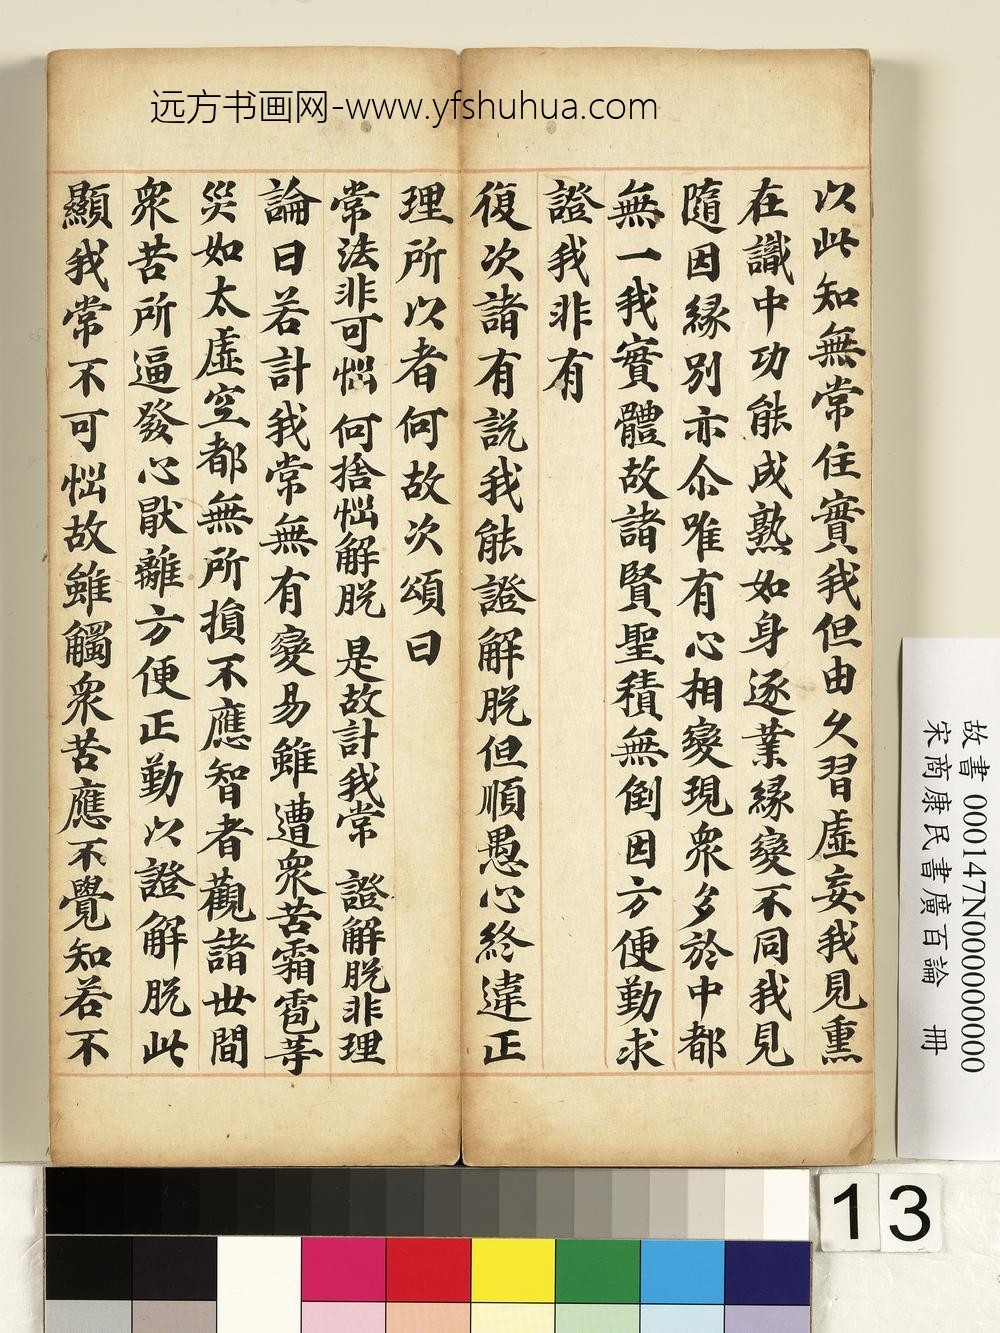 远方书画网-www.yfshuhua.com
以此知無常住實我但由久習虛妄我見熏
在識中功能成熟如身逐業緣變不同我見
隨因緣別亦尒唯有心相變現衆多於中都
無一我實體故諸賢聖積無倒因方便勤求
證我非有
復次諸有説我能證解脱但順愚心終違正
理所以者何故次頌曰
常法非可惱 何捨惱解脱 是故計我常 證解脱非理
論曰若計我常無有變易雖遭衆苦霜雹等
災如太虛空都無所損不應智者觀諸世間
衆苦所逼發心猒離方便正勤以證解脱此
顯我常不可惱故雖觸衆苦應不覺知若不
故書 000147N000000000
宋商康民書廣百論 冊
13